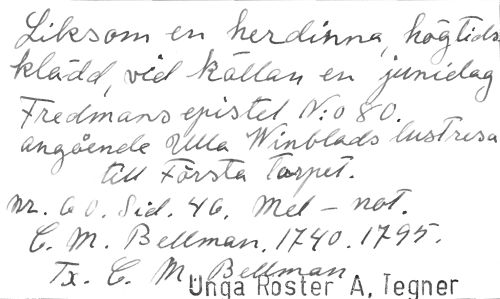 Liksom en herdinna, högtids
klädd, vid källan en junidag
Fredmans epistel N:o 80.
angående Ulla Winblads lustresa
till Första Torpet.
nr. 60. Sid. 46. Mel - not.
C. M. Bellman. 1740. 1795.
Tx. C. M. Bellman
Unga Röster A, Tegner